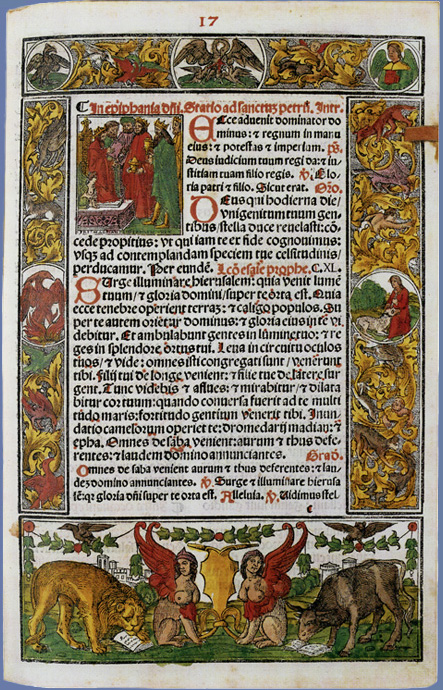 17
In epiphania dñi. Statio ad sanctuʒ petrũ. Intr.
Ecce advenit dominator do
minus: ⁊ regnum in manu
eius: ⁊ potestas ⁊ imperium. ps.
Deus iudicium tuum regi da: ⁊ iu-
stitiam tuam filio regis. ℣. Glo-
ria patri ⁊ filio. Sicut erat. Oro.
Deus qui hodierna die/
vnigenitum tuum gen
tibus/stella duce revelasti: cõ-
cede propitius: vt qui iam te ex fide cognouimus:
vsqʒ ad contemplandam speciem tue celsitudinis/
perducamur. Per eundẽ. Lcõ esaie prophe. C. XL.
Surge illuminare hierusalem: quia venit lumẽ
tuum/⁊ gloria domini/super te orta est. Quia
ecce tenebre operient terraʒ: ⁊ caligo populos. Su
per te autem orietur dominus: ⁊ gloria eius in te vi
debitur. Et ambulabunt gentes in lumine tuo: ⁊ re
ges in splendore ortus tui. Leua in circuitu oculos
tuos/⁊ vide: omnes isti congregati sunt/venerunt
tibi. Filij tui de longe venient: ⁊ filie tue de latere sur
gent. Tunc videbis ⁊ afflues: ⁊ mirabitur/⁊ dilata
bitur cor tuum: quando conuersa fuerit ad te multi
tudo maris: fortitudo gentium venerit tibi. Inun
datio camelorum operiet te: dromedarij madian: ⁊
epha. Omnes de saba venient: aurum ⁊ thus defe-
rentes: ⁊ laudem domino annunciantes. Grad.
Omnes de saba venient aurum ⁊ thus deferentes: ⁊ lau-
dem domino annunciantes. ℣. Surge ⁊ illuminare hierusa
lẽ: qʒ gloria dñi super te orta est. Alleluia. ℣. Uidimus stel
c